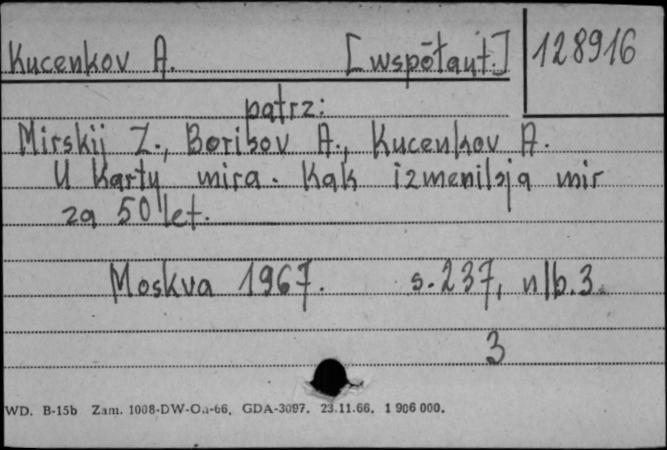 Kucenkov A. [współaut.] 128916
patrz:
Mirskij Z., Borisov A., Kucenkov A.
U karty mira. Kak izmenilsja mir
za 50 let.
Moskva 1967. s. 237, nlb. 3.
3
WD. B-15b Zam. 1008-DW-On-66. GDA-3097. 23.11.66. 1 906 000.